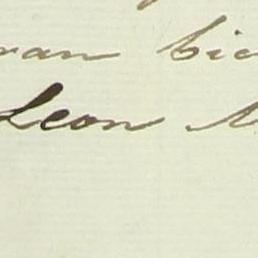 ran bie
Leon M